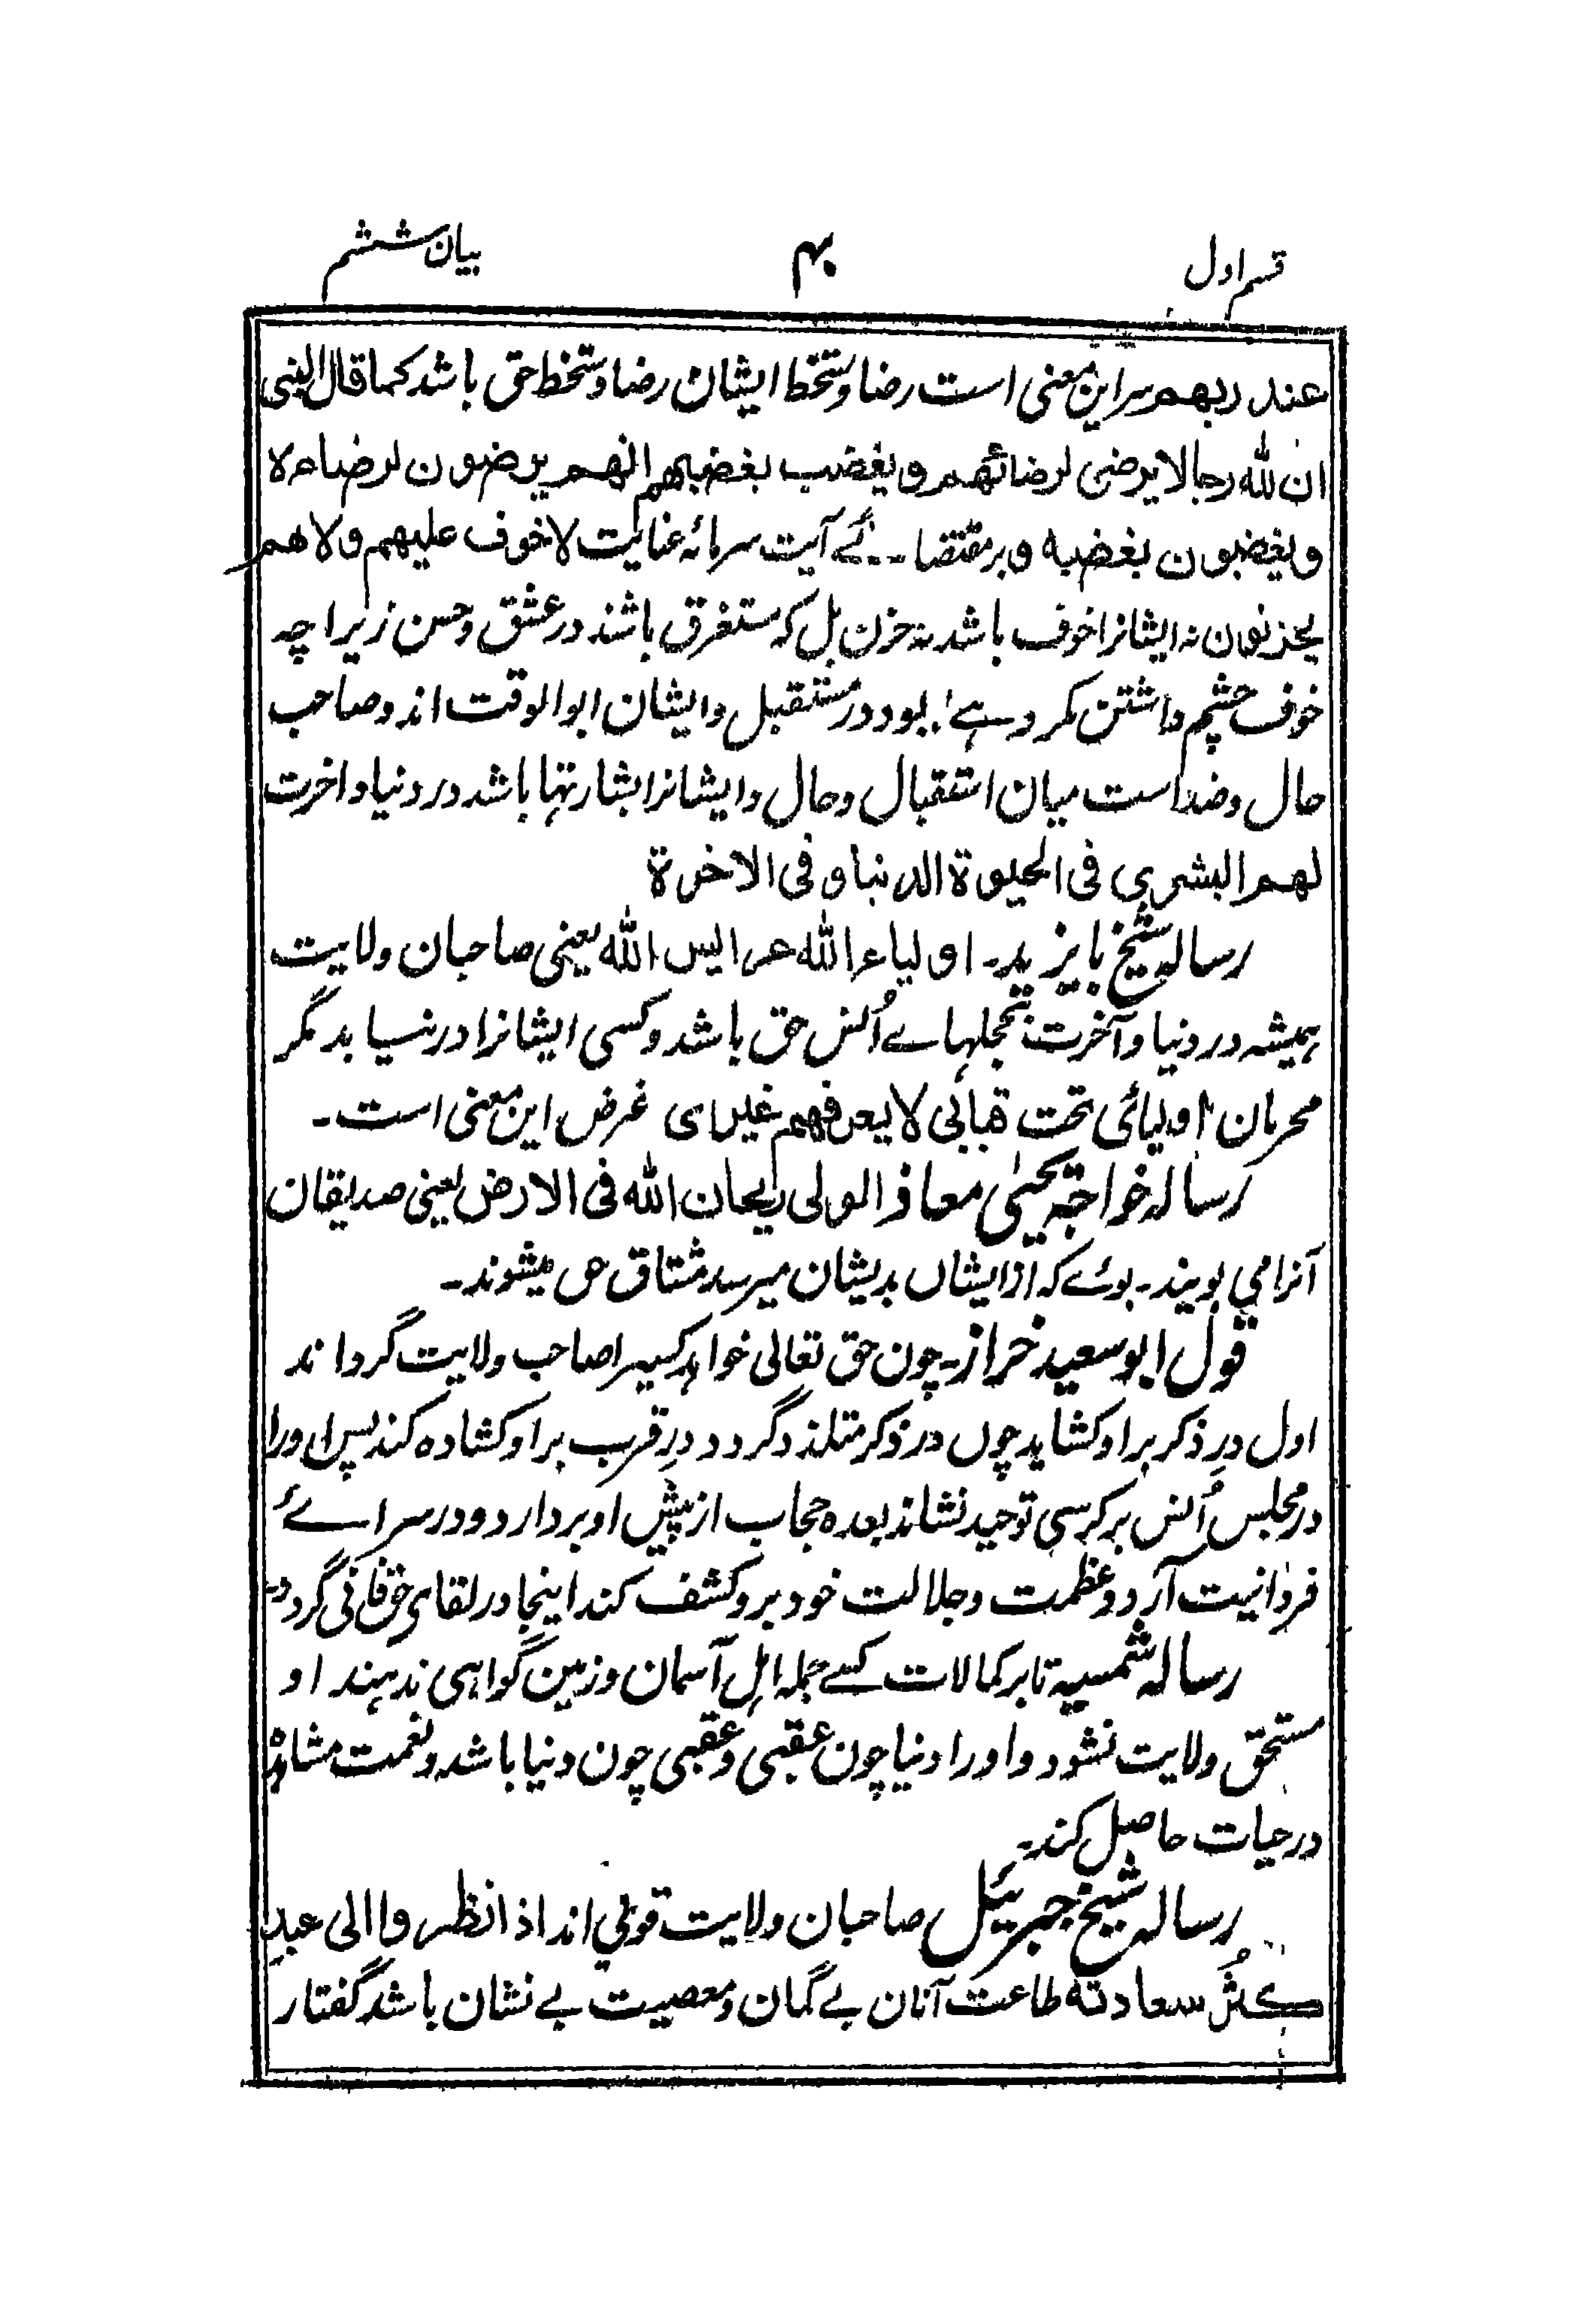 قسم اول ۴۰ بیان ششم
عند ربهم سر این معنی است رضا و سخط ایشان رضا و سخط حق باشد کما قال النبی
ان لله رجالا یرضی لرضائهم و یغضب بغضبهم انهم یرضون لرضاه لا
و یغضبون بغضبه و بر مقتضا ۔۔ ئے آیت سرمائه عنایت لا خوف علیهم ولا هم
یحزنون نه ایشانرا خوف باشد نه حزن بل که مستغرق باشند در عشق و حسن زیرا چه
خوف چشم داشتن مکروہے بود در مستقبل و ایشان ابو الوقت اند و صاحب
حال و ضد است میان استقبال و حال و ایشانرا بشارتها باشد در دنیا و اخرت
لهم البشری فی الحیوة الدنیا و فی الاخرة
رساله شیخ بایزید۔ اولیاء الله عرایس الله یعنی صاحبان ولایت
همیشه در دنیا و آخرت بحجلهاے اُنس حق باشد و کسی ایشانرا در نیابد مگر
محرمان اولیائی تحت قبائی لا یعرفهم غیرای غرض این معنی است۔
رساله خواجه یحیٰی معاذ الولی ریحان الله فی الارض یعنی صدیقان
آنرا می بویند۔ بوئے که از ایشاں بدیشان میرسد مشتاق حق میشوند۔
قول ابو سعید خراز۔ چون حق تعالی خواهد کسیرا صاحب ولایت گرداند
اول درِ ذکر بر او کشاید چوں در ذکر متلذذ گردد درِ قرب بر او کشاده کند پس او را
در مجلس اُنس بر کرسی توحید نشاند بعده حجاب از پیش او بردارد و در سراےٴ
فردانیت آرد و عظمت و جلالت خود برو کشف کند اینجا در لقای حق فانی گردد۔
رساله شمسیه تا بر کمالات کسے جمله اهل آسمان و زمین گواهی ندهند او
مستحق ولایت نشود و او را دنیا چون عقبی و عقبی چون دنیا باشد و نعمت مشاهده
در حیات حاصل کند۔
رساله شیخ جبرئیل صاحبان ولایت قومی اند اذا نظروا الی عبد
کثُر سعادته طاعت آنان بے گمان و معصیت بے نشان باشد گفتار